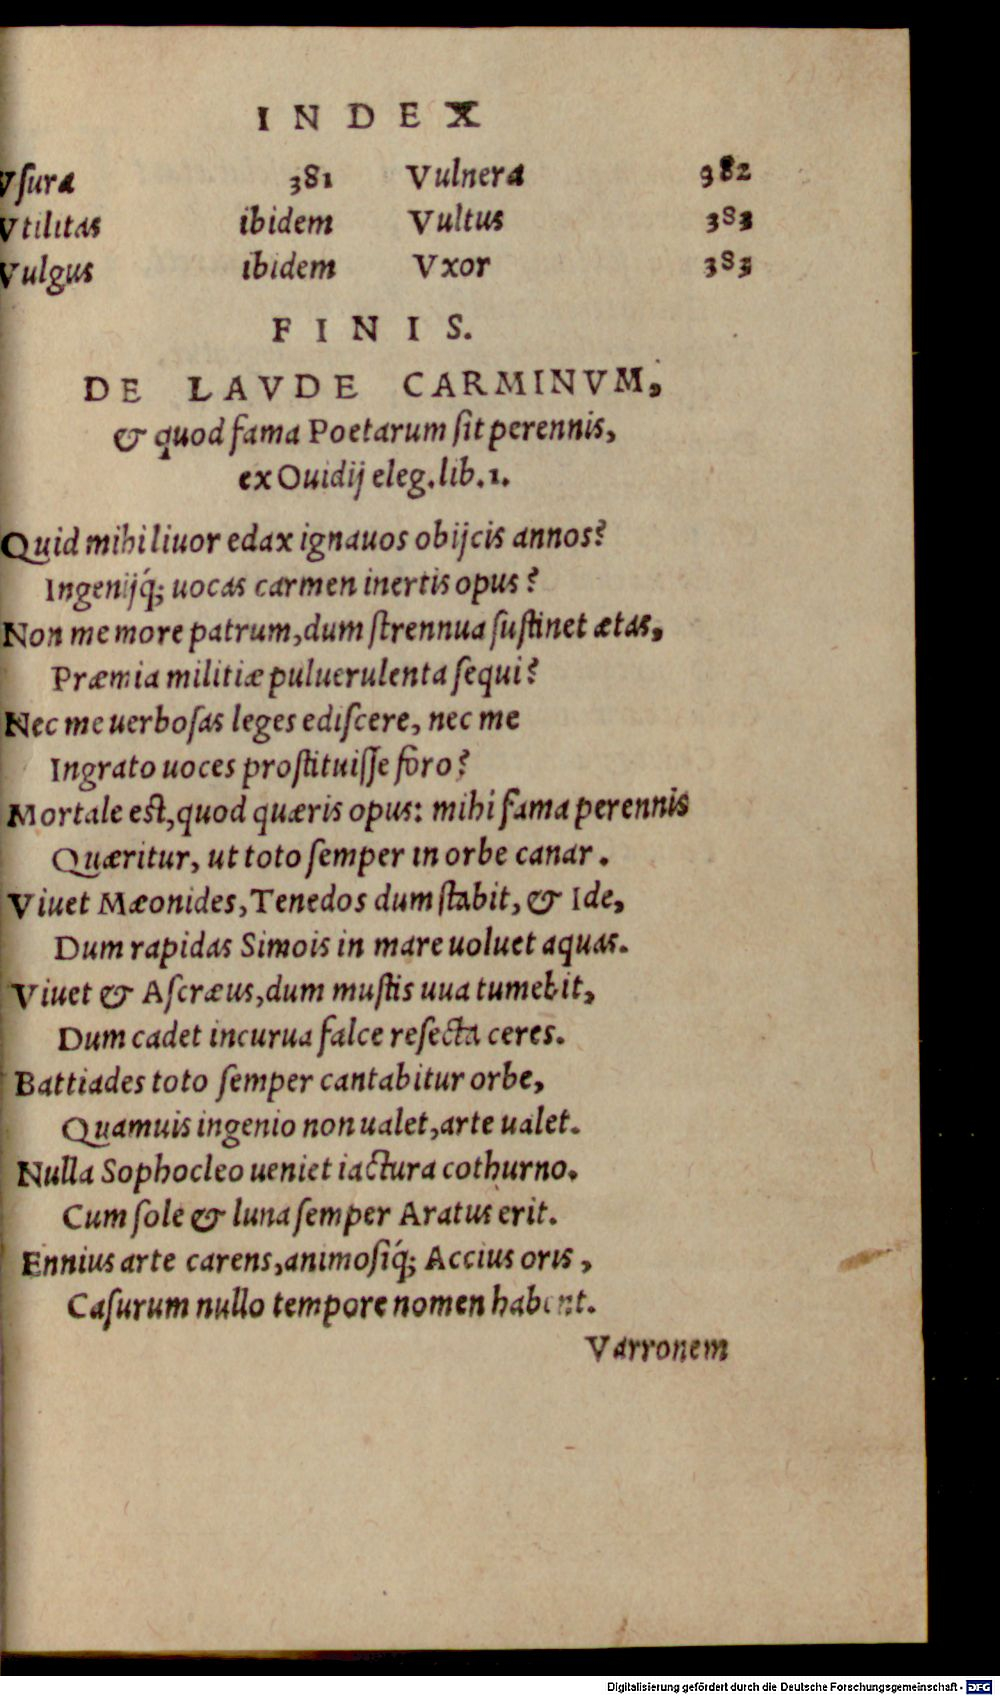 INDEX
Vſura 381 Vulnera 982
Vtilitas ibidem Vultus 383
Vulgus ibidem Vxor 383
FINIS.
DE LAVDE CARMINVM,
& quod fama Poetarum ſit perennis,
ex Ouidij eleg. lib. 1.
Quid mihi liuor edax ignauos obijcis annos?
Ingenijq́; uocas carmen inertis opus?
Non me more patrum, dum ſtrennua ſuſtinet ætas,
Præmia militiæ puluerulenta ſequi?
Nec me uerboſas leges ediſcere, nec me
Ingrato uoces proſtituiſſe foro?
Mortale est, quod quæris opus: mihi fama perennis
Quæritur, ut toto ſemper in orbe canar.
Viuet Mæonides, Tenedos dum ſtabit, & Ide,
Dum rapidas Simois in mare uoluet aquas.
Viuet & Aſcræus, dum muſtis uua tumebit,
Dum cadet incurua falce reſecta ceres.
Battiades toto ſemper cantabitur orbe,
Quamuis ingenio non ualet, arte ualet.
Nulla Sophocleo ueniet iactura cothurno.
Cum ſole & luna ſemper Aratus erit.
Ennius arte carens, animoſiq́; Accius oris,
Caſurum nullo tempore nomen habent.
Varronem
Digitalisierung gefördert durch die Deutsche Forschungsgemeinschaft - DFG